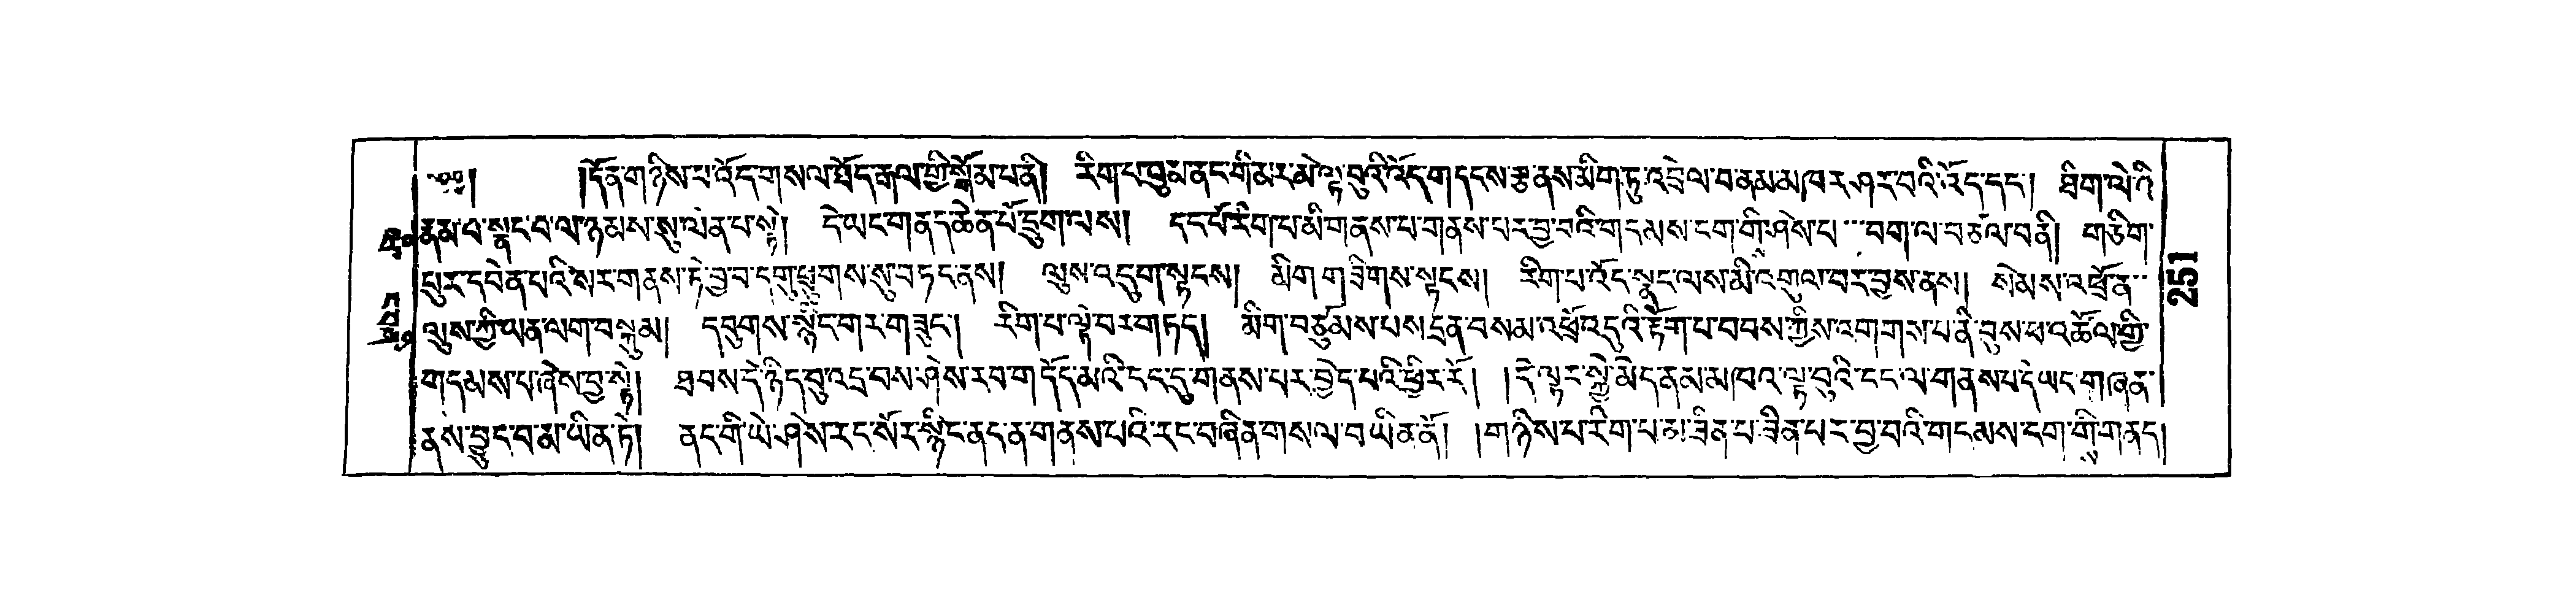 ༄༅། །དོན་གཉིས་པ་འོད་གསལ་ཐོད་རྒལ་གྱི་སྒོམ་པ་ནི། རིག་པ་བུམ་ནང་གི་མར་མེ་ལྟ་བུའི་འོད་གདངས་རྩ་ནས་མིག་ཏུ་འབྲེལ་བ་ནམ་མཁར་ཤར་བའི་འོད་དང་། ཐིག་ལེ་ཉི
རྣམ་པ་སྣང་བ་ལ་ཉམས་སུ་ལེན་པ་སྟེ། དེ་ཡང་གནད་ཆེན་པོ་དྲུག་ལས། དང་པོ་རིག་པ་མི་གནས་པ་གནས་པར་བྱ་བའི་གདམས་ངག་གི་ཤེས་པ་་་བག་ལ་བཅལ་བ་ནི། གཅིག་
པུར་དབེན་པའི་སར་གནས་ཏེ་བྱ་བ་དགུ་ཕྲུགས་སུ་བཏང་ནས། ལུས་འདུག་སྟངས། མིག་གཟིགས་སྟངས། རིག་པ་འོད་སྣང་ལས་མི་འགུལ་བར་བྱས་ནས། སེམས་འཕྲོ་ན་་
ལུས་ཀྱི་ཡན་ལག་བསྐུམ། དབུགས་སྙིང་གར་གཟུང་། རིག་པ་ལྟེ་བར་གཏད། མིག་བཙུམས་པས་དྲན་བསམ་འཕྲོ་འདུའི་རྟོག་པ་བབས་ཀྱིས་འགགས་པ་ནི་བུས་ཕ་འཚོལ་གྱི་
གདམས་པ་ཞེས་བྱ་སྟེ། ཐབས་དེ་ཉིད་བུ་འདྲ་བས་ཤེས་རབ་གདོད་མའི་ངང་དུ་གནས་པར་བྱེད་པའི་ཕྱིར་རོ། །དེ་ལྟར་སྐྱེ་མེད་ནམ་མཁའ་ལྟ་བུའི་ངང་ལ་གནས་པ་དེ་ཡང་གཞན་
ནས་བྱུང་བ་མ་ཡིན་ཏེ། ནང་གི་ཡེ་ཤེས་རང་སོར་སྙིང་ནད་ན་གནས་པའི་རང་བཞིན་གསལ་བ་ཡིན་ནོ། །གཉིས་པ་རིག་པ་མ་ཟིན་པ་ཟིན་པར་བྱ་བའི་གདམས་ངག་གི་གནད།